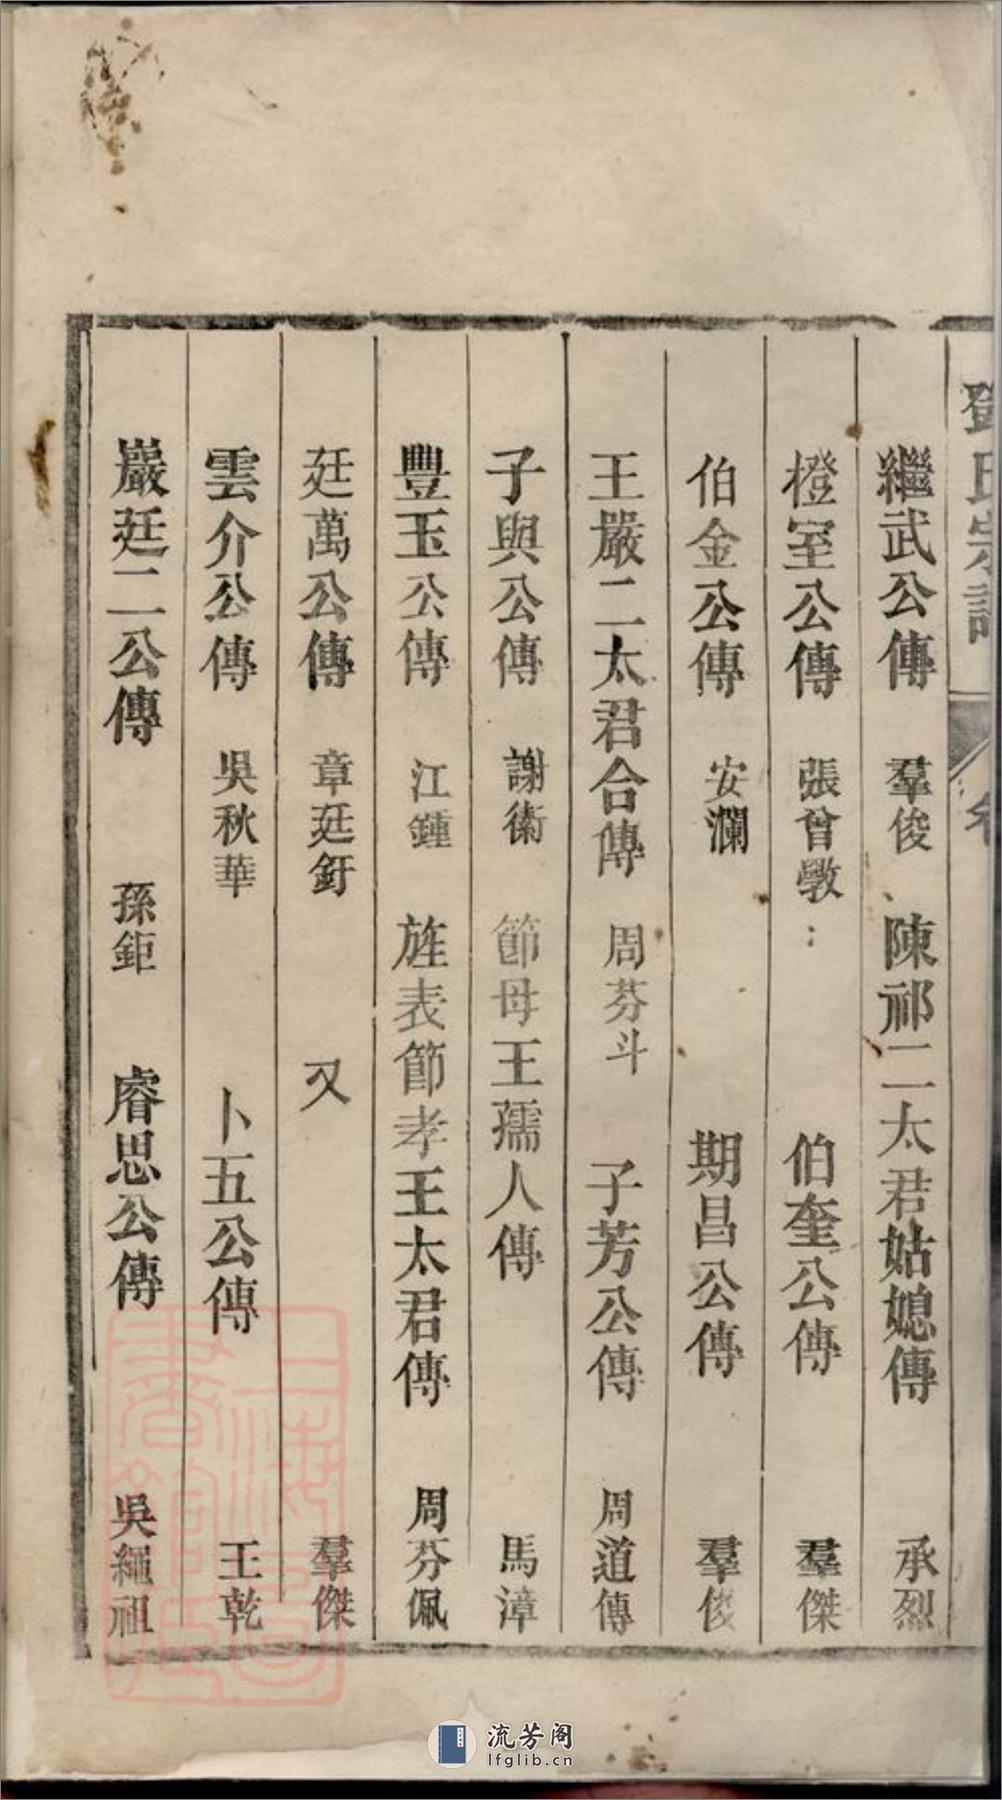 鄧氏宗譜 卷
繼武公傳 羣俊 陳祁二太君姑媳傳 承烈
橙室公傳 張曾敭 伯奎公傳 羣傑
伯金公傳 安瀾 期昌公傳 羣俊
王嚴二太君合傳 周芬斗 子芳公傳 周道傳
子與公傳 謝衛 節母王孺人傳 馬漳
豐玉公傳 江鍾 旌表節孝王太君傳 周芬佩
廷萬公傳 章廷釪 又 羣傑
雲介公傳 吳秋華 卜五公傳 王乾
巖廷二公傳 孫鉅 睿思公傳 吳繩祖
上海圖書館藏
流芳阁
lfglib.cn